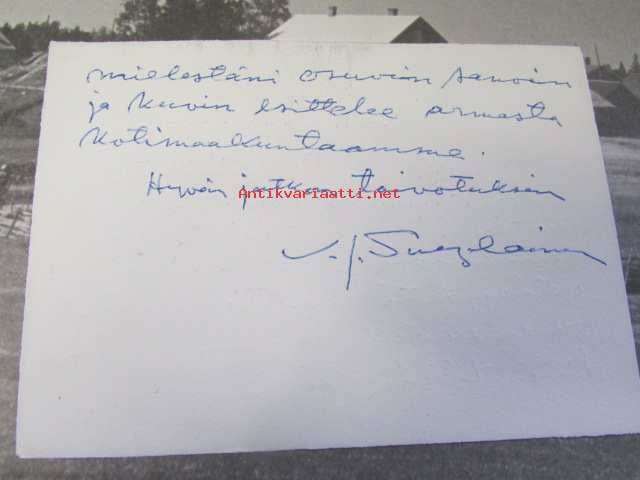 mielestäni osuvin sanoin
ja kuvin esittelee armasta
kotimaakuntaamme.
Hyvän jatkon toivotuksin
Antikvariaatti.net
V. J. Sukselainen